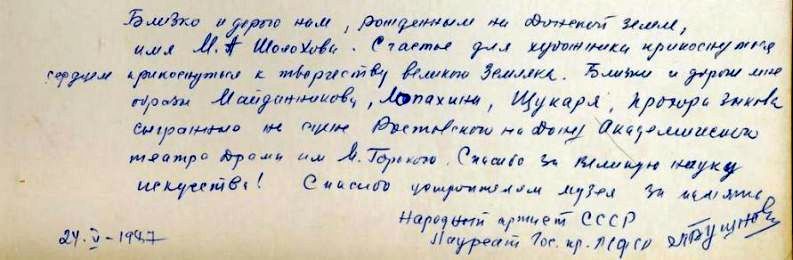 Близко и дорого нам, рожденным на Донской земле,
имя М.А Шолохова. Счастье для художника прикоснуться
сердцем прикоснуться к творчеству великого Земляка. Близки и дороги мне
образы Майданникова, Лопахина, Щукаря, Прохора Зыкова
сыгранные на сцене Ростовского на Дону Академического
театра драмы им М. Горького. Спасибо за великую науку
искусства! Спасибо устроителям музея за память
Народный артист СССР
24. V - 1987 Лауреат Гос. пр. РСФСР